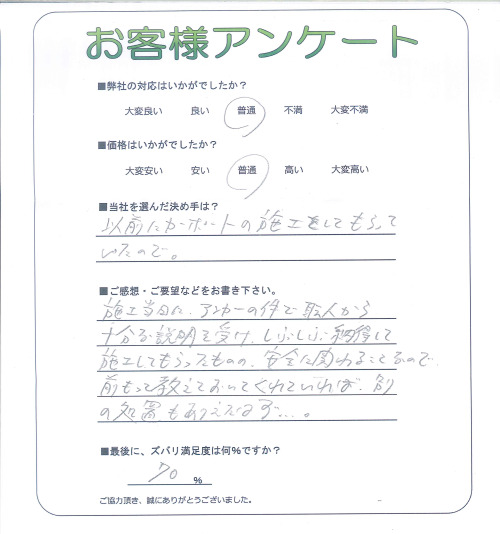 お客様アンケート
■弊社の対応はいかがでしたか？
大変良い 良い 普通 不満 大変不満
■価格はいかがでしたか？
大変安い 安い 普通 高い 大変高い
■当社を選んだ決め手は？
以前にカーポートの施工をしてもらって
いたので。
■ご感想・ご要望などをお書き下さい。
施工当日に、アンカーの件で職人から
十分な説明を受け、しぶしぶ納得して
施工してもらったものの、安全に関わることなので、
前もって教えておいてくれていれば、別
の処置もありえたはず…。
■最後に、ズバリ満足度は何%ですか？
70 %
ご協力頂き、誠にありがとうございました。